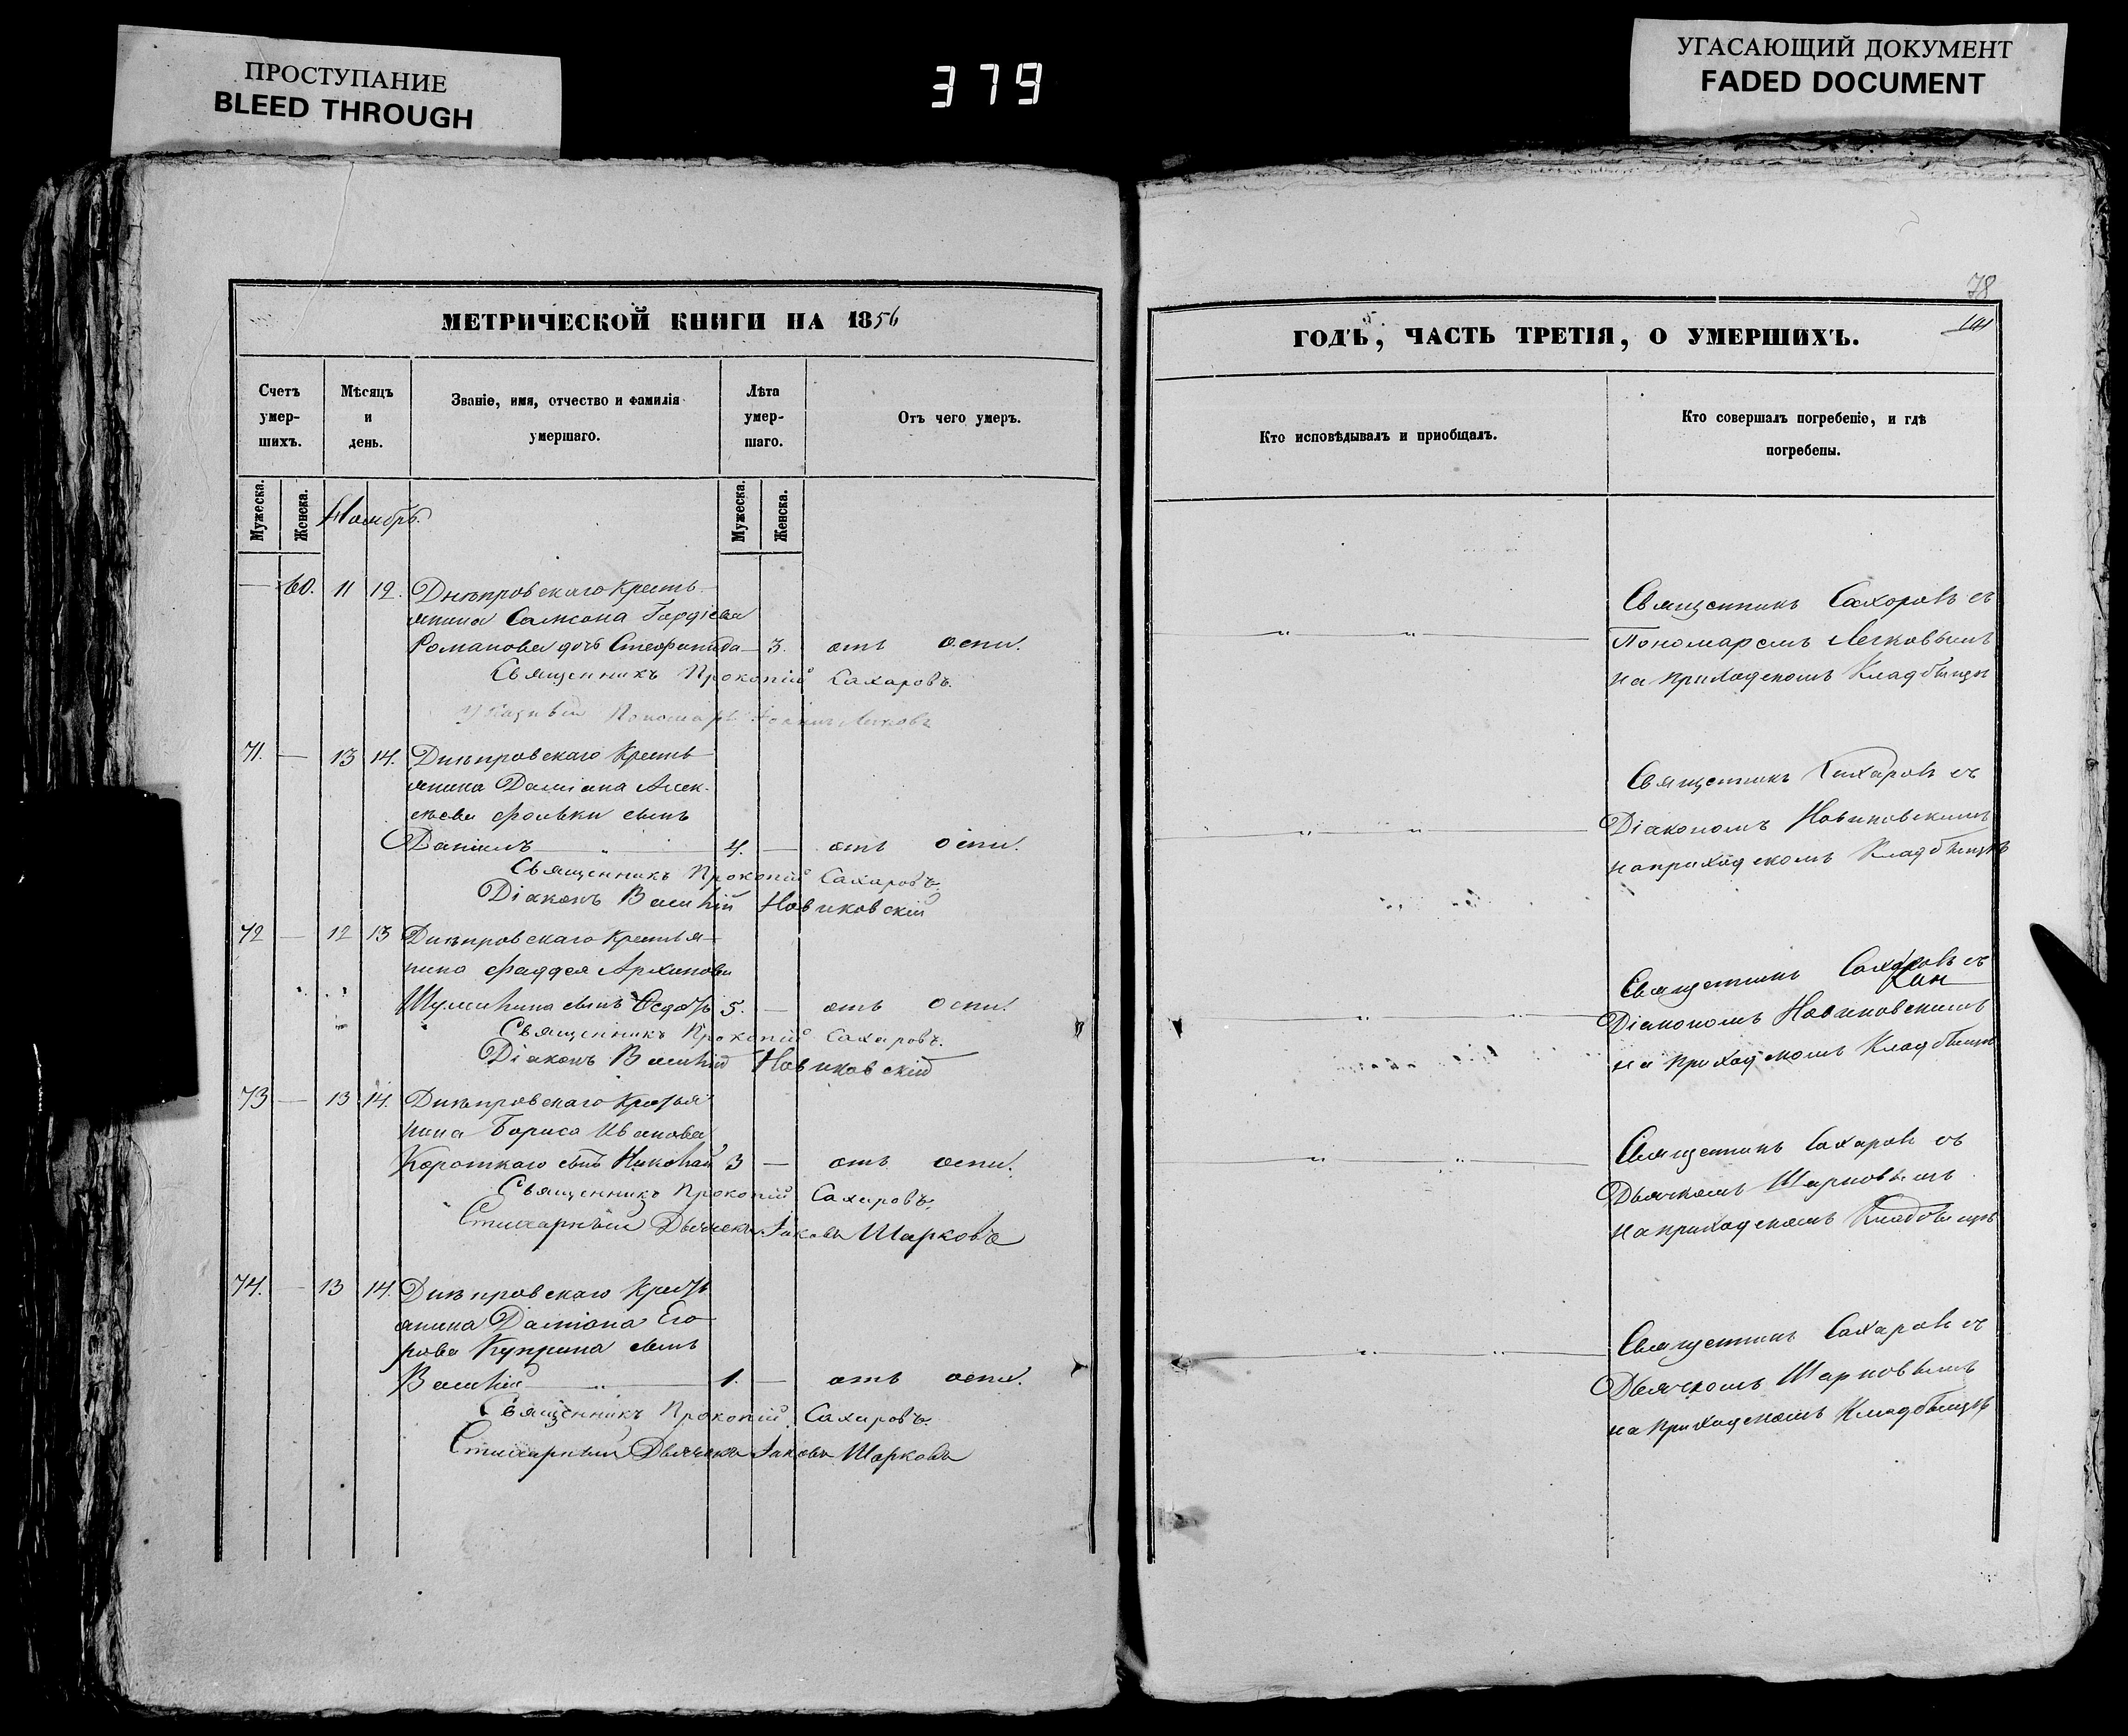 ПРОСТУПАНИЕ
BLEED THROUGH
379
УГАСАЮЩИЙ ДОКУМЕНТ
FADED DOCUMENT
МЕТРИЧЕСКОЙ КНИГИ НА 1856
Счетъ умер-шихъ.
Мѣсяцъ и день.
Званіе, имя, отчество и фамилія умершаго.
Лѣта умер-шаго.
Отъ чего умеръ.
Мужеска. Женска. Ноябрь. Мужеска. Женска.
— 60. 11 12. Днѣпровскаго Кресть-
янина Самсона Гордіева
Романова дочь — 3. отъ оспы.
Священникъ Прокопій Сахаровъ.
Пономарь
71. — 13 14. Днѣпровскаго Кресть-
янина Даміана Алек-
сѣева сынъ
Даніилъ „ 4. — отъ оспы.
Священникъ Прокопій Сахаровъ.
Діаконъ Василій Новиковскій
72 — 12 13 Днѣпровскаго Крестья-
нина Фаддея Архипова
сынъ Ѳедоръ 5. — отъ оспы.
Священникъ Прокопій Сахаровъ.
Діаконъ Василій Новиковскій
73 — 13 14. Днѣпровскаго Крестья-
нина Бориса Иванова
Короткаго сынъ Николай 3 — отъ оспы.
Священникъ Прокопій Сахаровъ.
Стихарный Дьячекъ Іаковъ Шарковъ
74. — 13 14. Днѣпровскаго Кресть-
янина Даміана Его-
рова Куприна сынъ
Василій „ 1. — отъ оспы.
Священникъ Прокопій Сахаровъ.
Стихарный Дьячекъ Іаковъ Шарковъ
78
ГОДЪ, ЧАСТЬ ТРЕТІЯ, О УМЕРШИХЪ.
Кто исповѣдывалъ и приобщалъ.
Кто совершалъ погребеніе, и гдѣ погребены.
Священникъ Сахоровъ съ
Пономаремъ Легковымъ
на приходскомъ Кладбищѣ
Священникъ Сахаровъ съ
Діакономъ Новиковскимъ
на приходскомъ Кладбищѣ
Священникъ Сахаровъ съ
Діакономъ Новиковскимъ
на приходскомъ Кладбищѣ
Священникъ Сахаровъ съ
Дьячкомъ Шарковымъ
на приходскомъ Кладбищѣ
Священникъ Сахаровъ съ
Дьячкомъ Шарковымъ
на приходскомъ Кладбищѣ